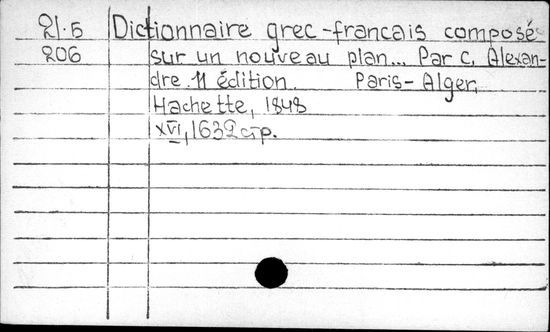 21.5 Dictionnaire grec-francais composé
206 sur un nouveau plan... Par C. Alexan-
dre. 11 édition. Paris-Alger,
Hachette, 1848
XVI, 1632 стр.